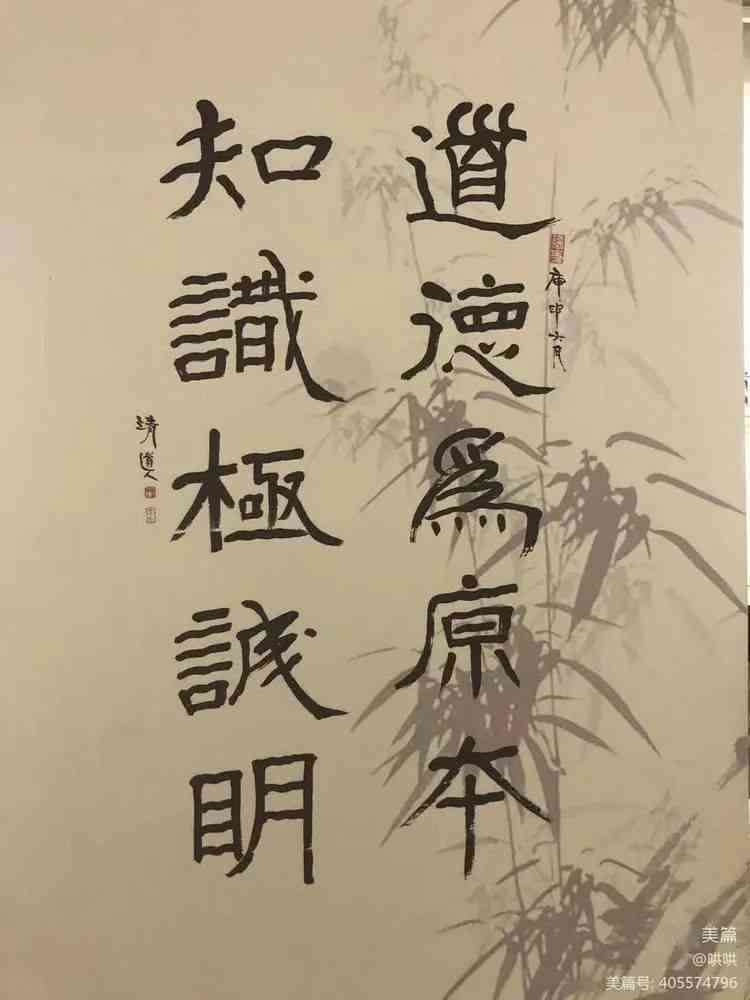 道德為原本
庚申六月
知識極誠明
清道人
美篇
@哄哄
美篇号: 405574796